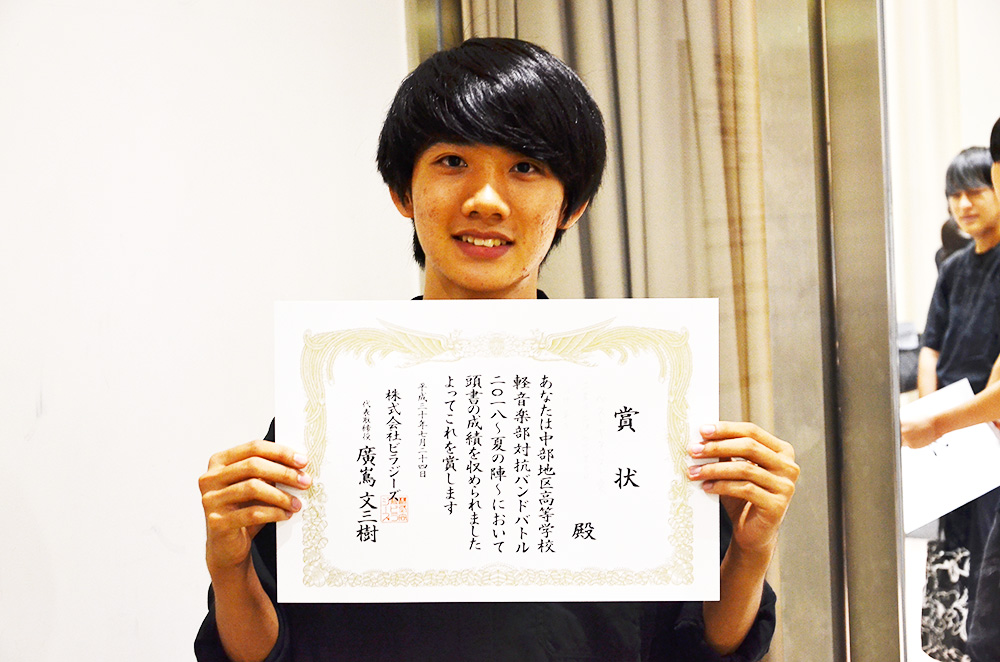 賞状
殿
あなたは中部地区高等学校
軽音楽部対抗バンドバトル
二〇一八～夏の陣～において
頭書の成績を収められました
よってこれを賞します
平成三十年七月二十四日
株式会社ビラジーズ
代表取締役 廣嶌 文三樹